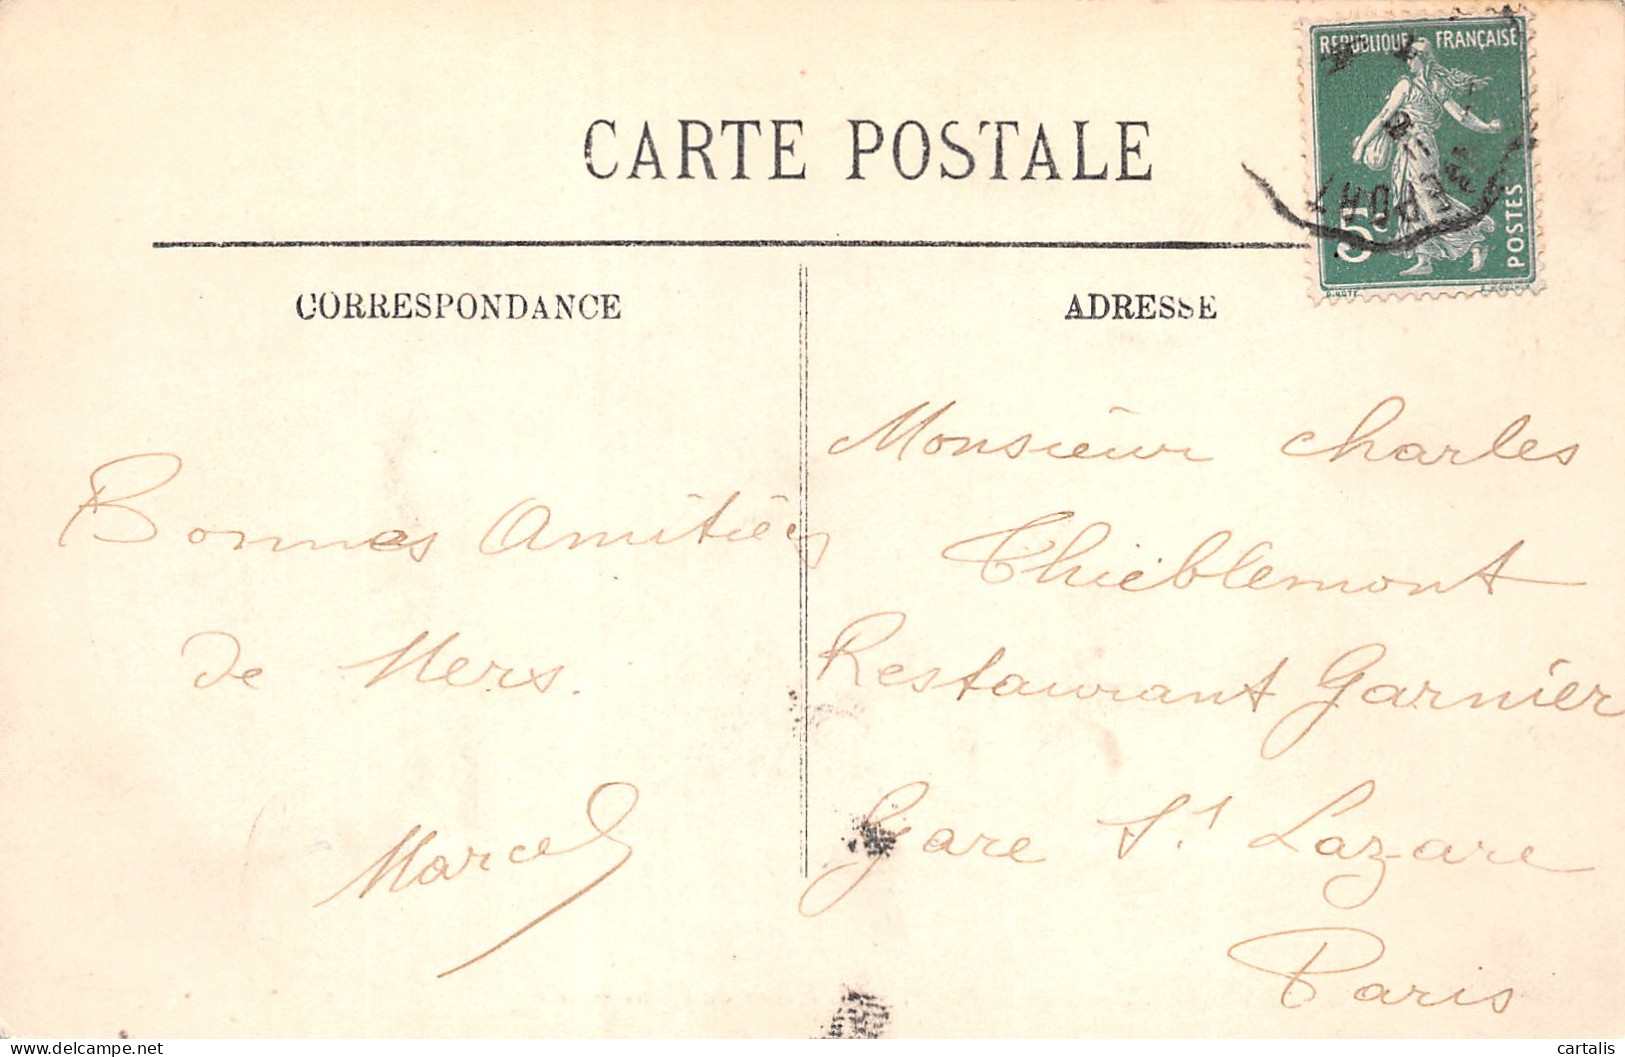 CARTE POSTALE
REPUBLIQUE FRANÇAISE
5c
POSTES
CORRESPONDANCE
ADRESSE
Bonnes Amitiés
de Mers.
Marcel
Monsieur Charles
Thiéblemont
Restaurant Garnier
Gare St Lazare
Paris
cartalis